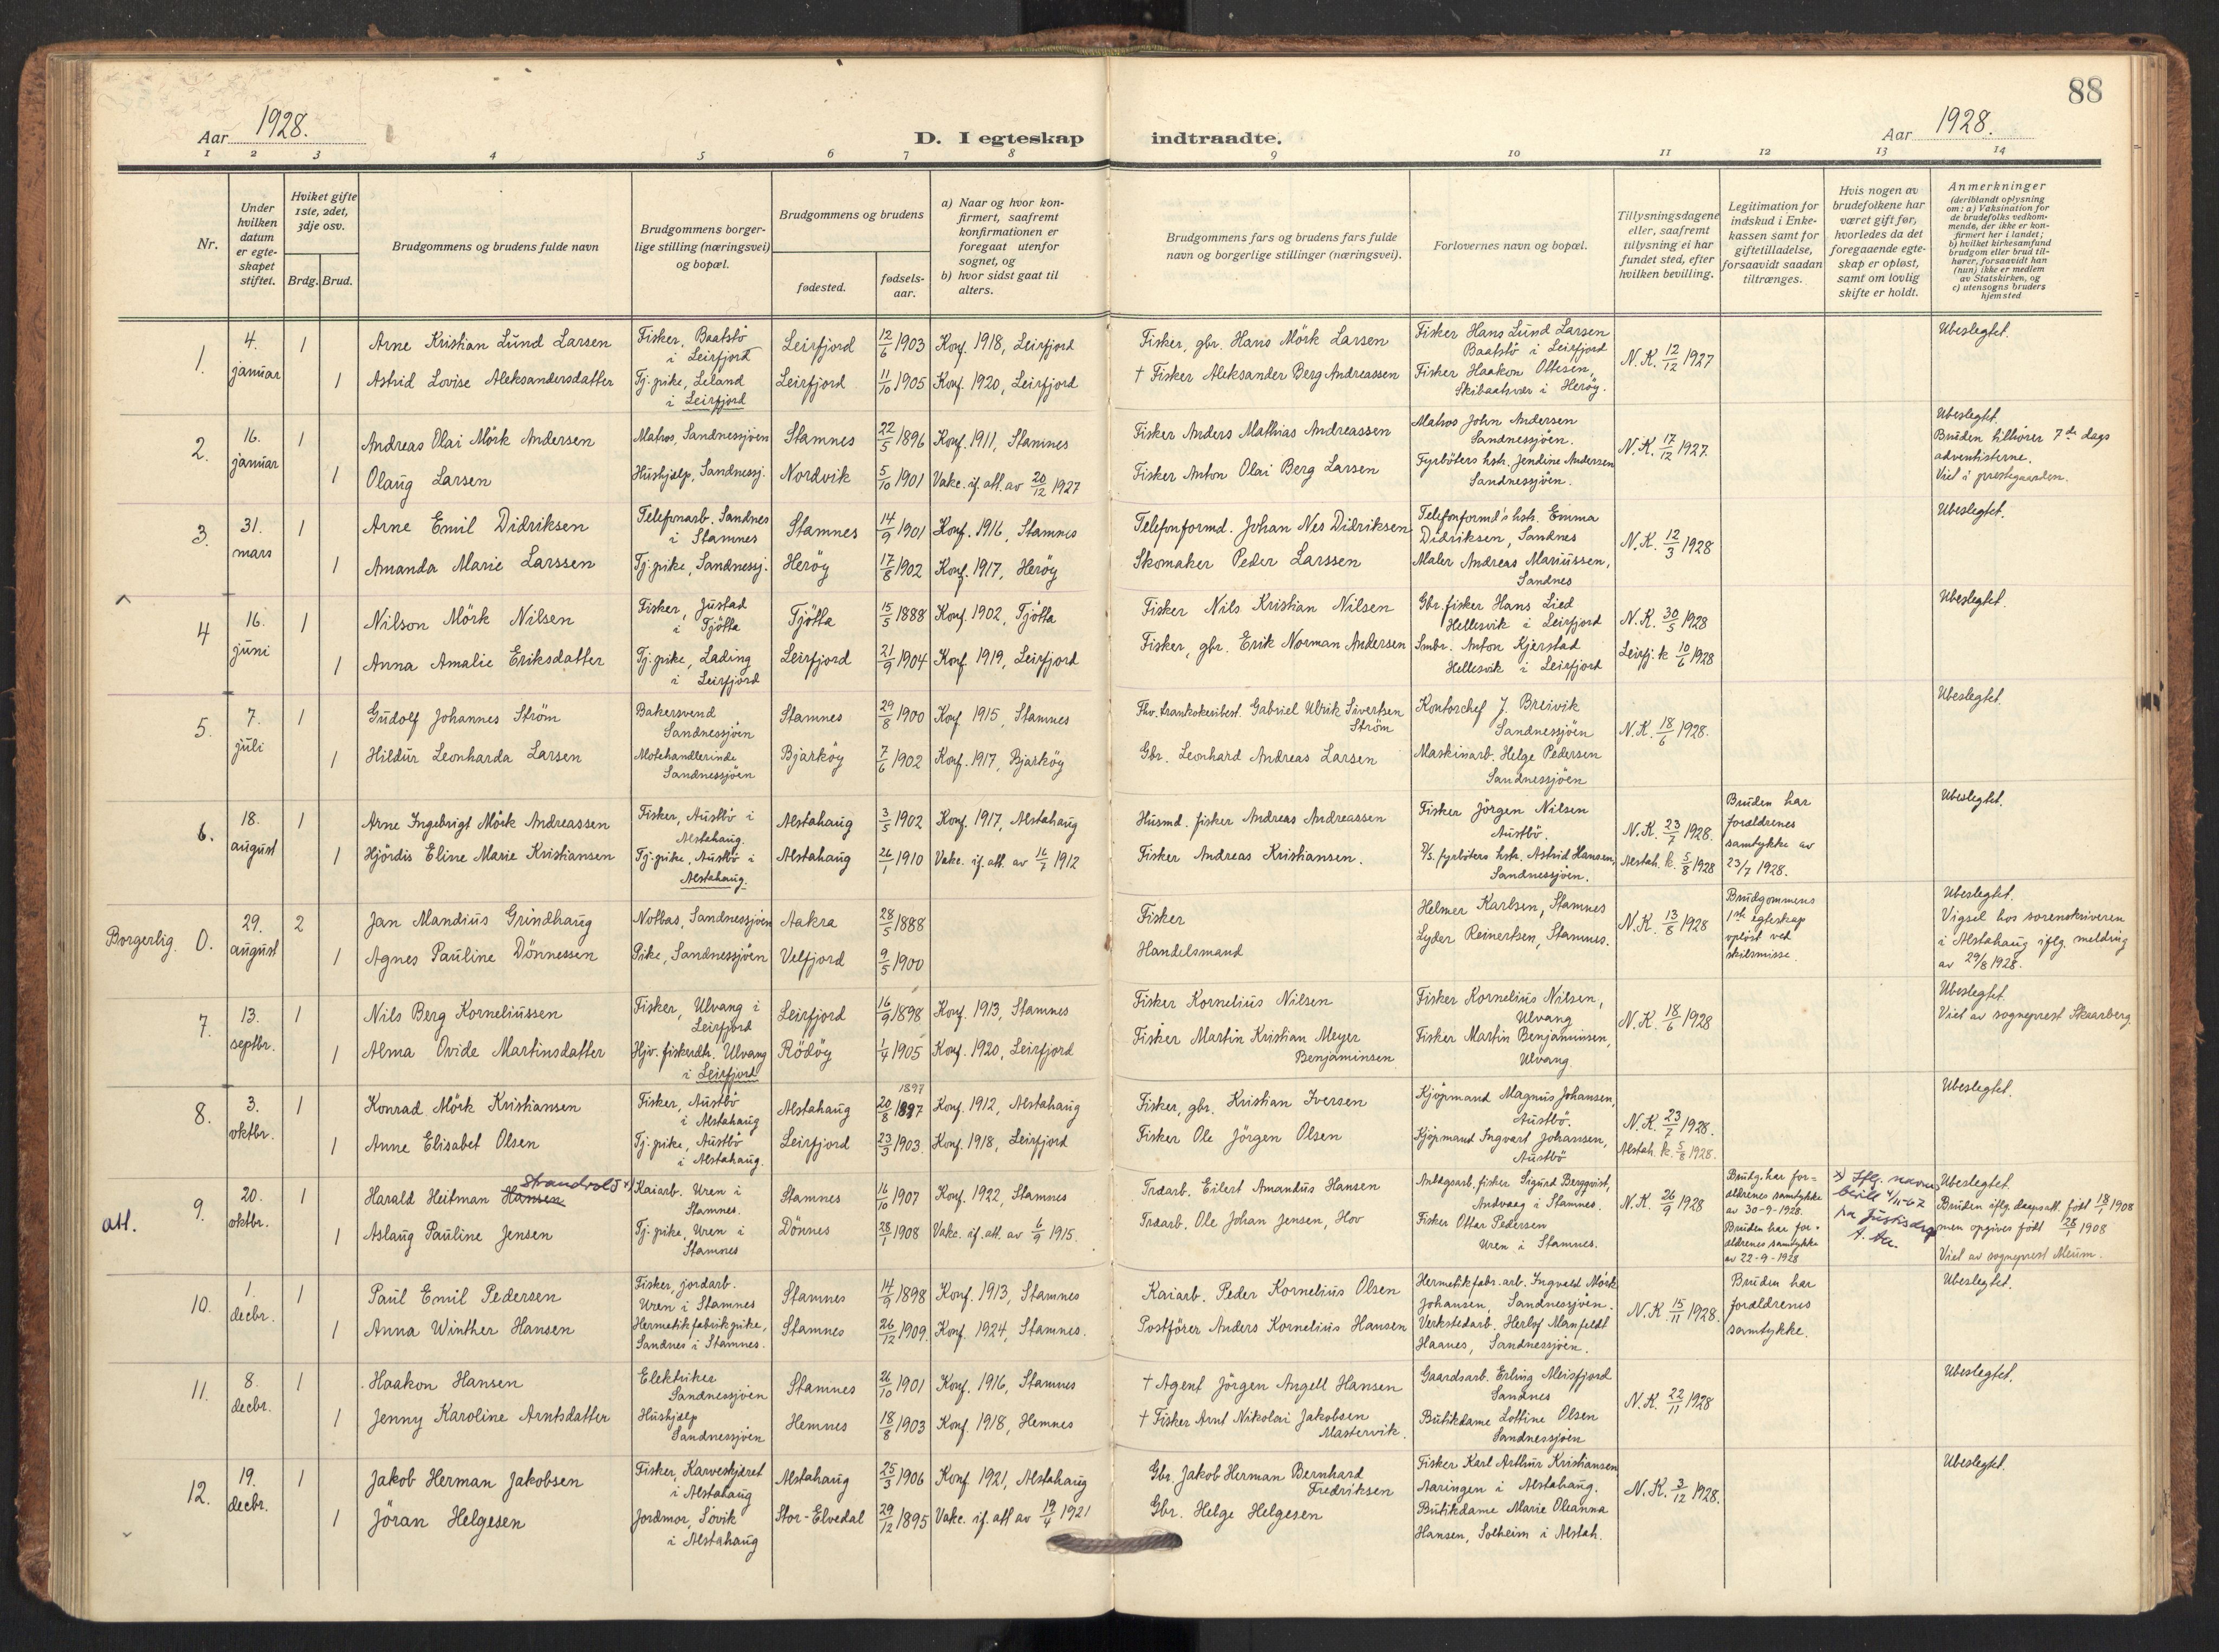 88
Aar 1928.
D. I egteskap indtraadte.
Aar 1928.
1 2 3 4 5 6 7 8 9 10 11 12 13 14
Nr.
Under hvilken datum er egteskapet stiftet.
Hvilket gifte 1ste, 2det, 3dje osv.
Brdg. Brud.
Brudgommens og brudens fulde navn
Brudgommens borgerlige stilling (næringsvei) og bopæl.
Brudgommens og brudens
fødested.
fødselsaar.
a) Naar og hvor konfirmert, saafremt konfirmationen er foregaat utenfor sognet, og
b) hvor sidst gaat til alters.
Brudgommens fars og brudens fars fulde navn og borgerlige stillinger (næringsvei).
Forlovernes navn og bopæl.
Tillysningsdagene eller, saafremt tillysning ei har fundet sted, efter hvilken bevilling.
Legitimation for indskud i Enkekassen samt for giftetilladelse, forsaavidt saadan tiltrænges.
Hvis nogen av brudefolkene har været gift før, hvorledes da det foregaaende egteskap er opløst, samt om lovlig skifte er holdt.
Anmerkninger (deriblandt oplysning om: a) Vaksination for de brudefolks vedkommende, der ikke er konfirmert her i landet; b) hvilket kirkesamfund brudgom eller brud tilhører, forsaavidt han (hun) ikke er medlem av Statskirken, og c) utensogns bruders hjemsted
1. 4. januar 1 Arne Kristian Lund Larsen Fisker, Baatstö i Leirfjord Leirfjord 12/6 1903 Konf. 1918, Leirfjord Fisker, gbr. Hans Mörk Larsen Fisker Hans Lund Larsen Baatstö i Leirfjord N.K. 12/12 1927 Ubeslegtet.
1 Astrid Lovise Aleksandersdatter Tj. pike, Leland i Leirfjord Leirfjord 11/10 1905 Konf. 1920, Leirfjord † Fisker Aleksander Berg Andreassen Fisker Haakon Ottesen, Skibaatsvær i Heröy.
2. 16. januar 1 Andreas Olai Mörk Andersen Matros, Sandnessjöen Stamnes 22/5 1896 Konf. 1911, Stamnes Fisker Anders Mathias Andreassen Matros John Andersen Sandnessjöen. N.K. 17/12 1927. Ubeslegtet. Bruden tilhörer 7de dags adventisterne. Viet i prestegaarden.
1 Olaug Larsen Hushjelp, Sandnessj. Nordvik 5/10 1901 Vakc. if. att. av 20/12 1927 Fisker Anton Olai Berg Larsen Fyrböters hstr. Jendine Andersen Sandnessjöen.
3. 31. mars 1 Arne Emil Didriksen Telefonarb. Sandnes i Stamnes Stamnes 14/9 1901 Konf. 1916, Stamnes Telefonformd. Johan Nes Didriksen Telefonformd's hstr. Emma Didriksen, Sandnes N.K. 12/3 1928 Ubeslegtet.
1 Amanda Marie Larssen Tj. pike, Sandnessj. Heröy 17/8 1902 Konf. 1917, Heröy Skomaker Peder Larssen Maler Andreas Mariussen, Sandnes
4 16. juni 1 Nilson Mörk Nilsen Fisker, Justad i Tjötta Tjötta 15/5 1888 Konf. 1902, Tjötta Fisker Nils Kristian Nilsen Gbr. fisker Hans Lied Hellesvik i Leirfjord N.K. 30/5 1928 Ubeslegtet.
1 Anna Amalie Eriksdatter Tj. pike, Lading i Leirfjord Leirfjord 21/9 1904 Konf. 1919, Leirfjord Fisker, gbr. Erik Norman Andersen Smbr. Anton Kjerstad Hellesvik i Leirfjord Leirfj. k 10/6 1928
5. 7. juli 1 Gudolf Johannes Ström Bakersvend Sandnessjöen Stamnes 29/8 1900 Konf. 1915, Stamnes Gabriel Ulrik Sivertsen Ström Kontorchef J. Breivik Sandnessjöen N.K. 18/6 1928. Ubeslegtet.
1 Hildur Leonharda Larsen Motehandlerinde Sandnessjöen Bjarköy 7/6 1902 Konf. 1917, Bjarköy Gbr. Leonhard Andreas Larsen Maskinarb. Helge Pedersen Sandnessjöen
6. 18. august 1 Arne Ingebrigt Mörk Andreassen Fisker, Austbö i Alstahaug. Alstahaug 3/5 1902 Konf. 1917, Alstahaug Husmd. fisker Andreas Andreassen Fisker Jörgen Nilsen Austbö. N.K. 23/7 1928. Bruden har forældrenes samtykke av 23/7 1928. Ubeslegtet.
1 Hjördis Eline Marie Kristiansen Tj. pike, Austbö i Alstahaug. Alstahaug 26/1 1910 Vakc. if. att. av 16/7 1912 Fisker Andreas Kristiansen. D/S. fyrböters hstr. Astrid Hansen, Sandnessjöen. Alstah. k. 5/8 1928
Borgerlig. 0. 29. august 2 Jan Mandius Grindhaug Notbas, Sandnessjöen Aakra 28/5 1888 Fisker Helmer Karlsen, Stamnes N.K. 13/8 1928 Brudgommens 1ste egteskap oplöst ved skilsmisse. Ubeslegtet. Vigsel hos sorenskriveren i Alstahaug iflg. melding av 29/8 1928.
1 Agnes Pauline Dönnessen Pike, Sandnessjöen Velfjord 9/5 1900 Handelsmand Lyder Reinertsen, Stamnes.
7. 13. septbr. 1 Nils Berg Korneliussen Fisker, Ulvang i Leirfjord Leirfjord 16/9 1898 Konf. 1913, Stamnes Fisker Kornelius Nilsen Fisker Kornelius Nilsen, Ulvang N.K. 18/6 1928 Ubeslegtet. Viet av sogneprest Skaarberg.
1 Alma Ovide Martinsdatter Hjv. fiskerdtr. Ulvang i Leirfjord Rödöy 1/4 1905 Konf. 1920, Leirfjord Fisker Martin Kristian Meyer Benjaminsen Fisker Martin Benjaminsen, Ulvang.
8. 3. oktbr. 1 Konrad Mörk Kristiansen Fisker, Austbö i Alstahaug Alstahaug 1897 20/8 1897 Konf. 1912, Alstahaug Fisker, gbr. Kristian Iversen Kjöpmand Magnus Johansen, Austbö. N.K. 23/7 1928. Ubeslegtet.
1 Anne Elisabet Olsen Tj. pike, Austbö i Alstahaug. Leirfjord 23/3 1903. Konf. 1918, Leirfjord Fisker Ole Jörgen Olsen Kjöpmand Ingvart Johansen, Austbö Alstah. k. 5/8 1928.
att. 9. 20. oktbr. 1 Harald Heitman Hansen Strandvold x) Kaiarb. Uren i Stamnes. Stamnes 16/10 1907 Konf. 1922, Stamnes Trdarb. Eilert Amandus Hansen Anlegsarb. fisker Sigurd Bergqvist, Andvaag i Stamnes. N.K. 26/9 1928 Brudg. har forældrenes samtykke av 30-9-1928. x) Iflg. navnebevill. 4/11-67 fra Justisdep. Ubeslegtet. Bruden iflg. daapsatt. födt 18/1 1908 men opgives födt 28/1 1908 Viet av sogneprest
1 Aslaug Pauline Jensen Tj. pike, Uren i Stamnes Dönnes 28/1 1908 Vakc. if. att. av 6/9 1915. Trdarb. Ole Johan Jensen, Hov Fisker Ottar Pedersen Uren i Stamnes. Bruden har forældrenes samtykke av 22-9-1928
10. 1. decbr. 1 Paul Emil Pedersen Fisker, jordarb. Uren i Stamnes Stamnes 14/9 1898 Konf. 1913, Stamnes Kaiarb. Peder Kornelius Olsen Hermetikfabr. arb. Ingvald Mörk Johansen, Sandnessjöen. N.K. 15/11 1928. Bruden har forældrenes samtykke. Ubeslegtet.
1 Anna Winther Hansen Hermetikfabrikpike, Sandnes i Stamnes. Stamnes 26/12 1909. Konf. 1924, Stamnes. Postförer Anders Kornelius Hansen Verkstedarb. Herlof Manfeldt Haanes, Sandnessjöen.
11. 8. decbr. 1 Haakon Hansen Elektriker Sandnessjöen Stamnes 21/10 1901 Konf. 1916, Stamnes † Agent Jörgen Angell Hansen Gaardsarb. Erling Meisfjord Sandnes N.K. 22/11 1928 Ubeslegtet.
1 Jenny Karoline Arntsdatter Hushjelp Sandnessjöen Hemnes 18/8 1903 Konf. 1918, Hemnes † Fisker Arnt Nikolai Jakobsen Mastervik. Butikdame Lottine Olsen Sandnessjöen
12. 19. decbr. 1 Jakob Herman Jakobsen Fisker, Karveskjæret i Alstahaug Alstahaug 25/3 1906 Konf. 1921, Alstahaug Gbr. Jakob Herman Bernhard Fredriksen Fisker Karl Arthur Kristiansen Aaringen i Alstahaug. N.K. 3/12 1928. Ubeslegtet.
1 Jöran Helgesen Jordmor, Sövik i Alstahaug Stor-Elvedal 29/12 1895 Vakc. if. att av 19/4 1921 Gbr. Helge Helgesen Butikdame Marie Oleanna Hansen, Solheim i Alstah.